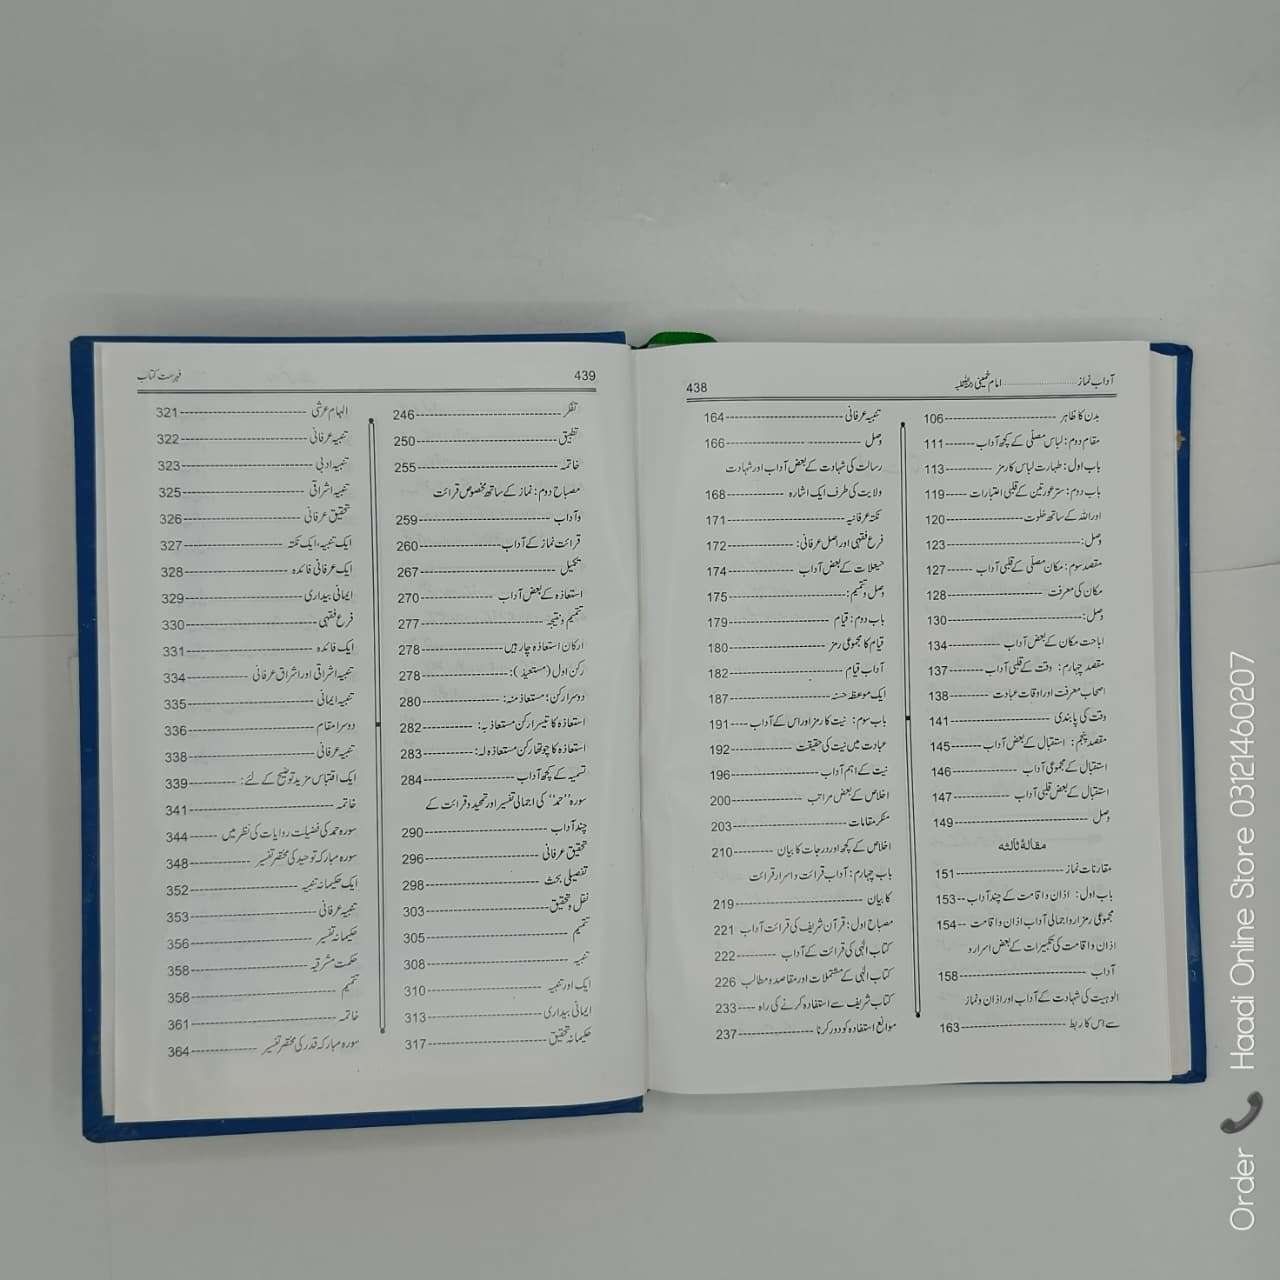 آداب نماز ........................ امام خمینی 438
بدن کا ظاہر 106
مقام دوم: لباس مصلّی کے کچھ آداب 111
باب اول: طہارت لباس کا رمز 113
باب دوم: ستر عورتین کے قلبی اعتبارات 119
اور اللہ کے ساتھ خلوت 120
وصل: 123
مقصد سوم: مکان مصلّی کے قلبی آداب 127
مکان کی معرفت 128
وصل: 130
اباحت مکان کے بعض آداب 134
مقصد چہارم: وقت کے قلبی آداب 137
اصحاب معرفت اور اوقات عبادت 138
وقت کی پابندی 141
مقصد پنجم: استقبال کے بعض آداب 145
استقبال کے مجموعی آداب 146
استقبال کے بعض قلبی آداب 147
وصل 149
مقالۂ ثالثہ
مقارنات نماز 151
باب اول: اذان و اقامت کے چند آداب 153
مجموعی رمز اور اجمالی آداب اذان و اقامت 154
اذان و اقامت کی تکبیرات کے بعض اسرار و
آداب 158
الوہیت کی شہادت کے آداب اور اذان و نماز
سے اس کا ربط 163
تنبیہ عرفانی 164
وصل 166
رسالت کی شہادت کے بعض آداب اور شہادت
ولایت کی طرف ایک اشارہ 168
نکتہ عرفانیہ 171
فرع فقہی اور اصل عرفانی: 172
حیعلات کے بعض آداب 174
وصل و تتمیم: 175
باب دوم: قیام 179
قیام کا مجموعی رمز 180
آداب قیام 182
ایک موعظہ حسنہ 187
باب سوم: نیت کا رمز اور اس کے آداب 191
عبادت میں نیت کی حقیقت 192
نیت کے اہم آداب 196
اخلاص کے بعض مراتب 200
منکر مقامات 203
اخلاص کے کچھ اور درجات کا بیان 210
باب چہارم: آداب قرائت و اسرار قرائت
کا بیان 219
مصباح اول: قرآن شریف کی قرائت آداب 221
کتاب الٰہی کی قرائت کے آداب 222
کتاب الٰہی کے مشتملات اور مقاصد و مطالب 226
کتاب شریف سے استفادہ کرنے کی راہ 233
موانع استفادہ کو دور کرنا 237
439 فہرست کتاب
تفکر 246
تطبیق 250
خاتمہ 255
مصباح دوم: نماز کے ساتھ مخصوص قرائت
و آداب 259
قرائت نماز کے آداب 260
تکمیل 267
استعاذہ کے بعض آداب 270
تتمیم و نتیجہ 277
ارکان استعاذہ چار ہیں 278
رکن اول (مستعیذ): 278
دوسرا رکن؛ مستعاذ منہ: 280
استعاذہ کا تیسرا رکن مستعاذ بہ: 282
استعاذہ کا چوتھا رکن مستعاذ لہ: 283
تسمیہ کے کچھ آداب 284
سورہ ”حمد“ کی اجمالی تفسیر اور تحمید و قرائت کے
چند آداب 290
تحقیق عرفانی 296
تفصیلی بحث 298
نقل و تحقیق 303
تتمیم 305
تنبیہ 308
ایک اور تنبیہ 310
ایمانی بیداری 313
حکیمانہ تحقیق 317
الہام عرشی 321
تنبیہ عرفانی 322
تنبیہ ادبی 323
تنبیہ اشراقی 325
تحقیق عرفانی 326
ایک تنبیہ، ایک نکتہ 327
ایک عرفانی فائدہ 328
ایمانی بیداری 329
فرع فقہی 330
ایک فائدہ 331
تنبیہ اشراقی اور اشراق عرفانی 334
تنبیہ ایمانی 335
دوسرا مقام 336
تنبیہ عرفانی 338
ایک اقتباس مزید توضیح کے لئے: 339
خاتمہ 341
سورہ حمد کی فضیلت روایات کی نظر میں 344
سورہ مبارکہ توحید کی مختصر تفسیر 348
ایک حکیمانہ تنبیہ 352
تنبیہ عرفانی 353
حکیمانہ تفسیر 356
حکمت مشرقیہ 358
تتمیم 358
خاتمہ 361
سورہ مبارکہ قدر کی مختصر تفسیر 364
Order Haadi Online Store 03121460207